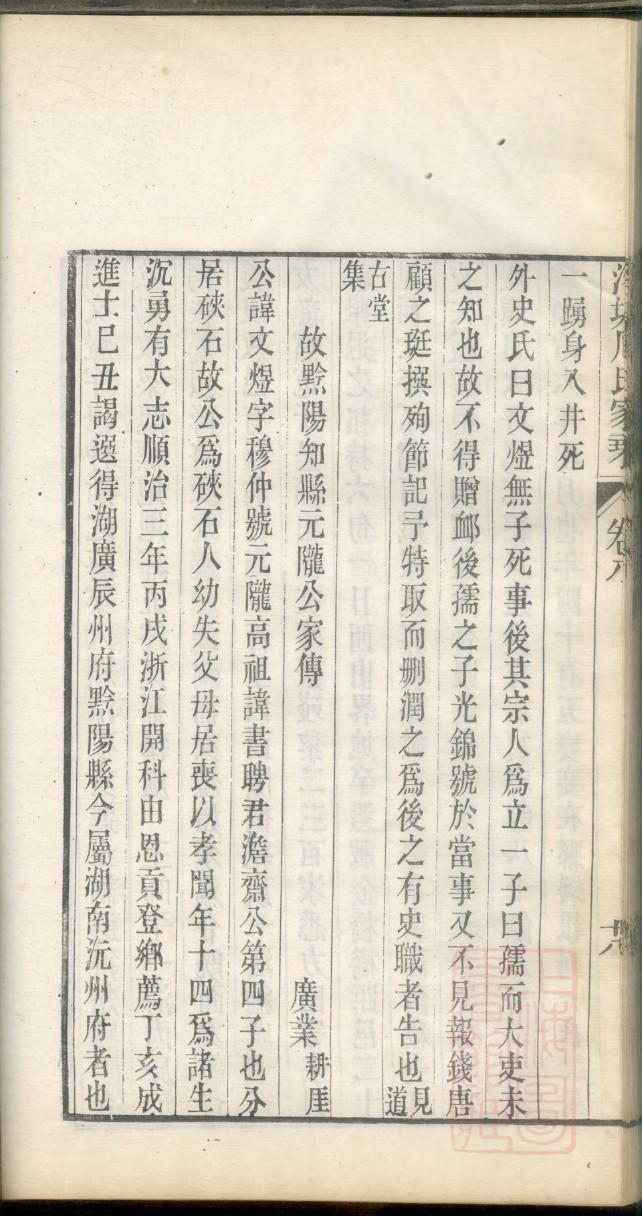 一踴身入井死
外史氏曰文煜無子死事後其宗人爲立一子曰孺而大吏未
之知也故不得贈䘏後孺之子光錦號於當事又不見報錢唐
顧之珽撰殉節記予特取而删潤之爲後之有史職者告也見道
古堂集
故黔陽知縣元隴公家傳
廣業 耕厓
公諱文煜字穆仲號元隴高祖諱書聘君澹齋公第四子也分
居硤石故公爲硤石人幼失父母居喪以孝聞年十四爲諸生
沉勇有大志順治三年丙戌浙江開科由恩貢登鄉薦丁亥成
進士巳丑謁選得湖廣辰州府黔陽縣今屬湖南沅州府者也